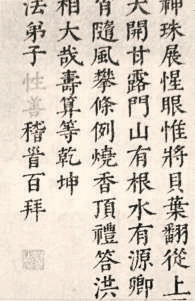 神珠展惺眼惟將貝葉翻從上
大開甘露門山有根水有源卿
有隨風攀條例燒香頂禮答洪
相大哉壽算等乾坤
法弟子性善稽首百拜